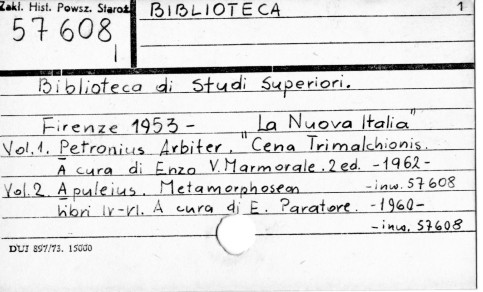 Zakł. Hist. Powsz. Staroż.
BIBLIOTECA 1
57 608
I
Biblioteca di Studi Superiori.
Firenze 1953 - "La Nuova Italia"
Vol.1. Petronius Arbiter. Cena Trimalchionis.
A cura di Enzo V. Marmorale. 2 ed. -1962-
-inw. 57608
Vol.2. Apuleius. Metamorphoseon
libri IV-VI. A cura di E. Paratore. -1960-
-inw. 57608
DUJ 897/73. 15000